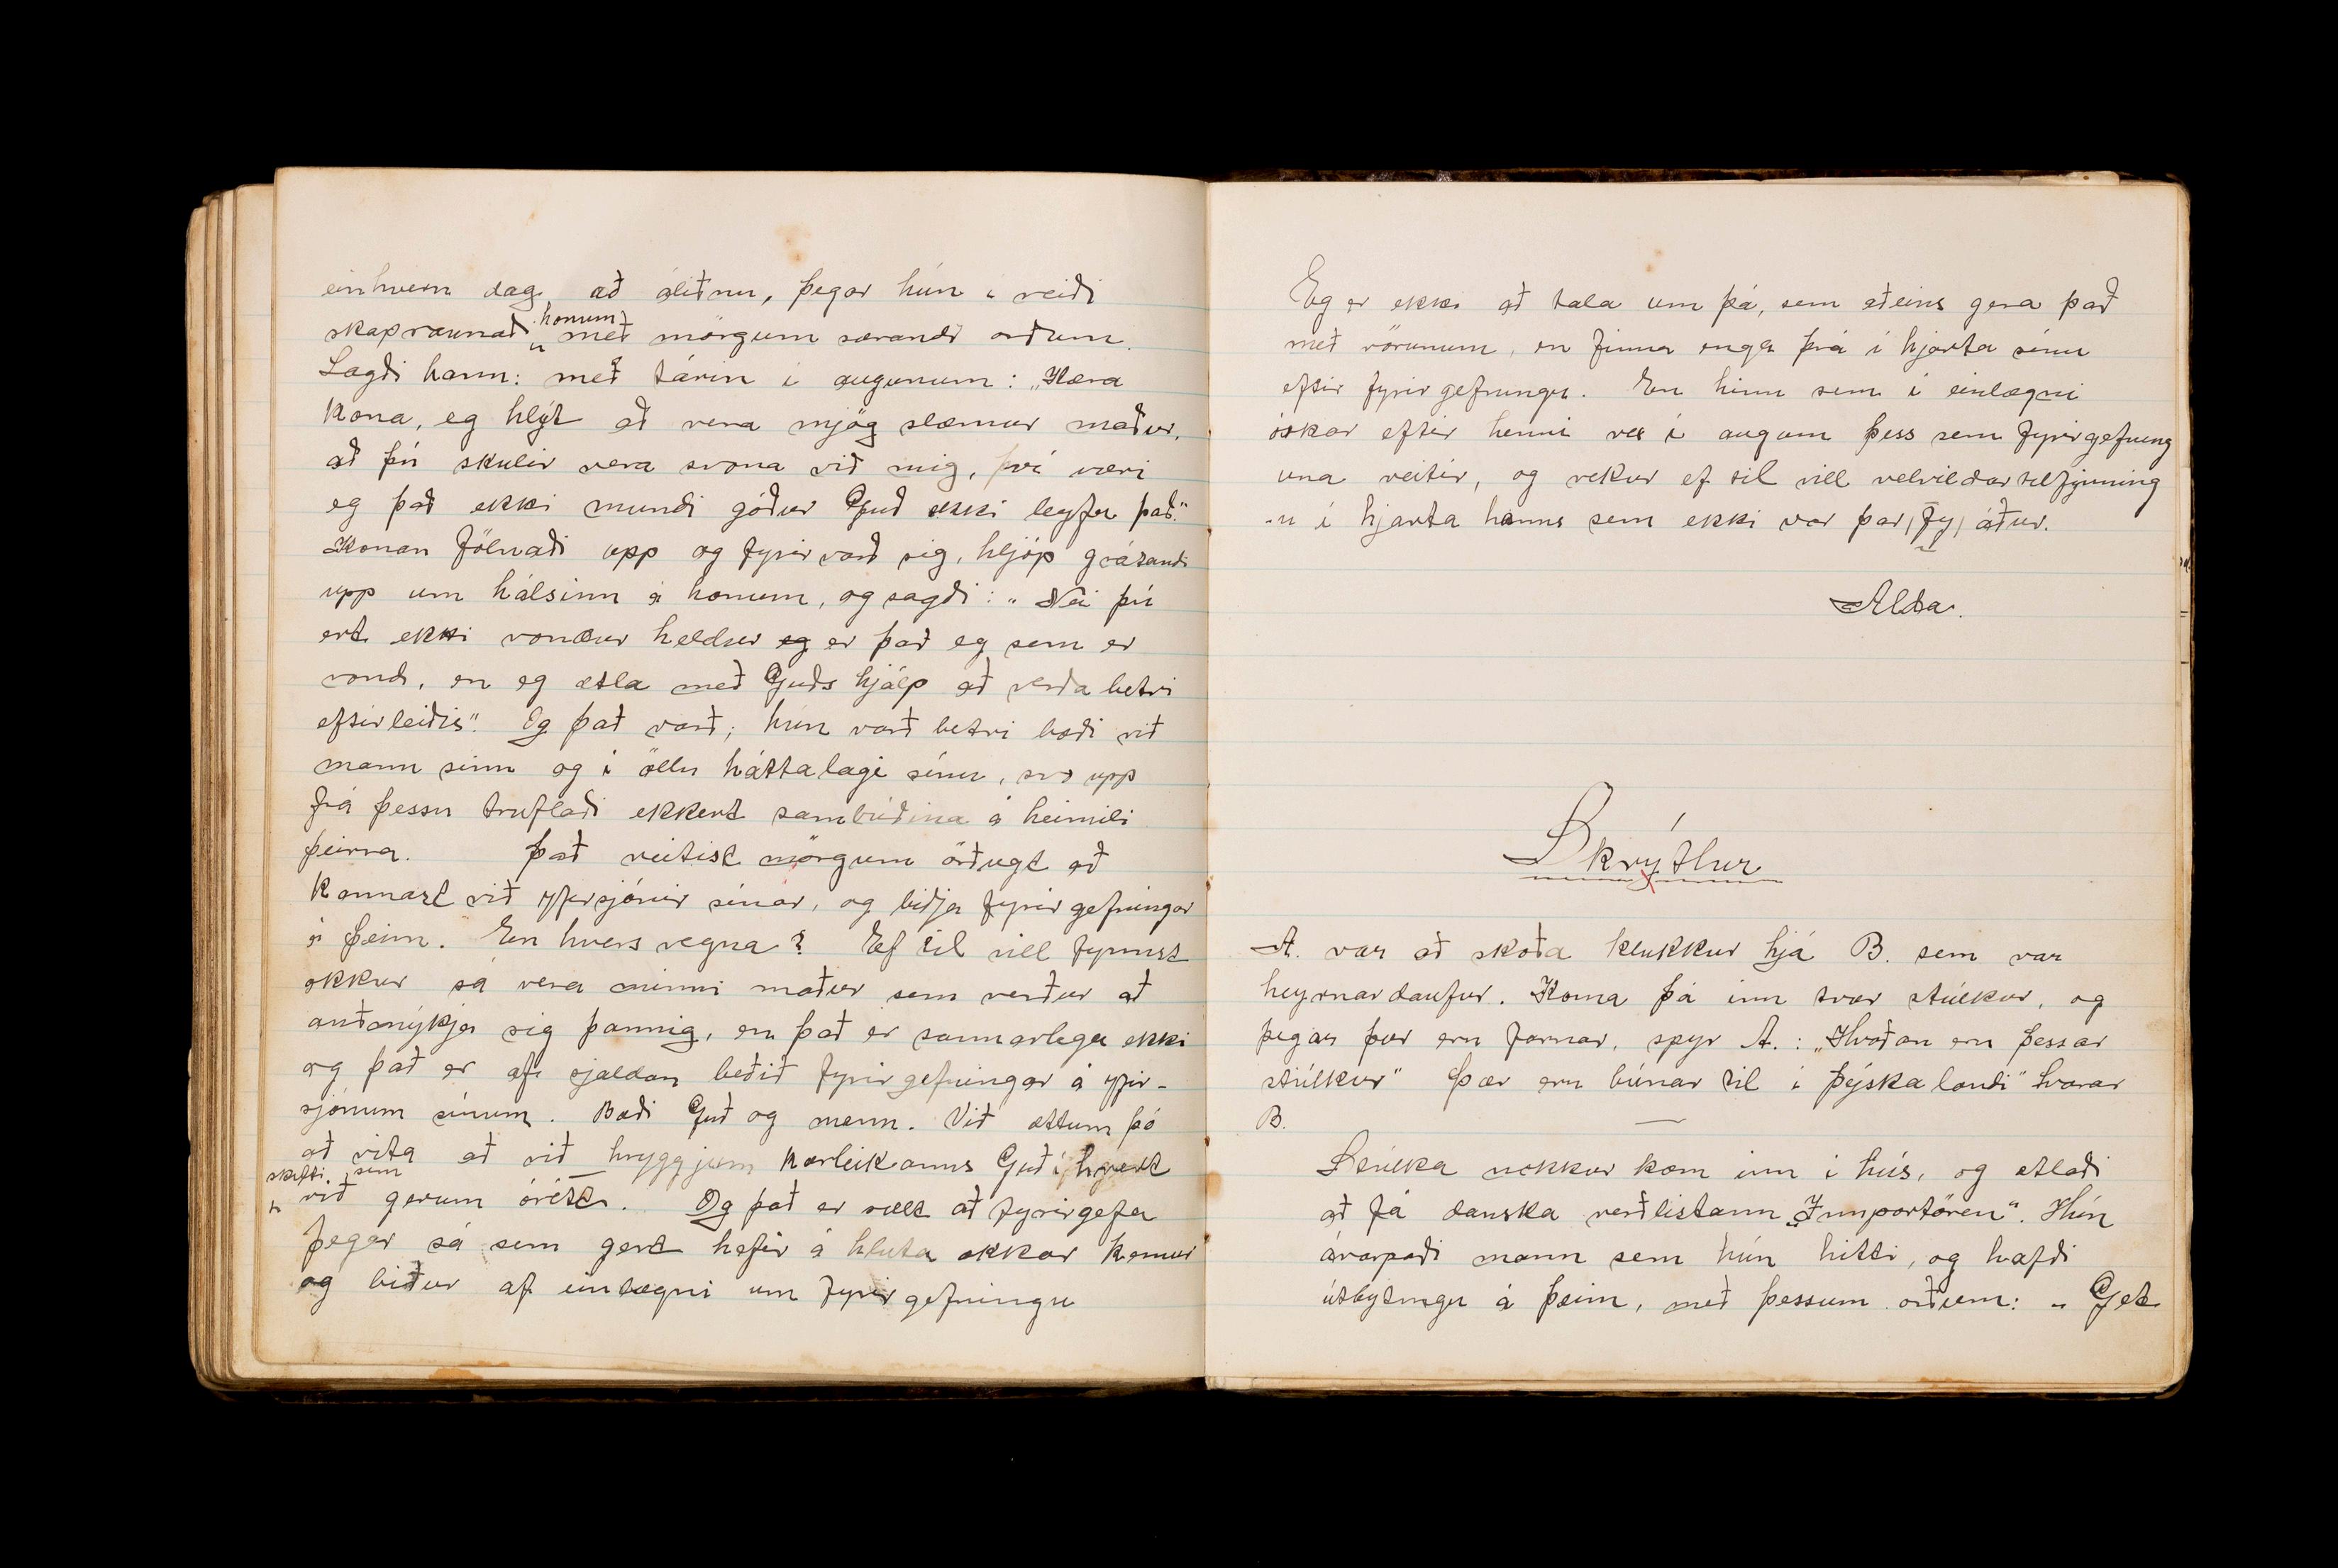 einhvern dag, að áliðnu, þegar hún í reiði
skapraunaði honum með mörgum særandi orðum.
Sagði hann: með tárin í augunum: „Kæra
kona, eg hlýt að vera mjög slæmur maður,
að þú skulir vera svona við mig, því væri
eg það ekki mundi góður Guð ekki leyfa það."
Konan fölnaði upp og fyrirvarð sig, hljóp grátandi
upp um hálsinn á honum, og sagði: „Nei þú
ert ekki vondur heldur eg er það eg sem er
vond, en eg ætla með Guðs hjálp að verða betri
eftirleiðis". Og það varð; hún varð betri bæði við
mann sinn og í öllu háttalagi sínu, svo upp
frá þessu truflaði ekkert sambúðina á heimili
þeirra. Það veitist mörgum örðugt að
kannast við yfirsjónir sínar, og biðja fyrirgefningar
á þeim. En hvers vegna? Ef til vill fynnst
okkur sá vera minni maður sem verður að
auðmýkja sig þannig, en það er sannarlega ekki
og það er of sjaldan beðið fyrirgefningar á yfir-
sjónum sínum. Bæði Guð og menn. Við ættum þó
að vita að við hryggjum kærleikanns Guð í hvert
skifti sem við gerum órétt. Og það er sælt að fyrirgefa
þegar sá sem gert hefir á hluta okkar kemur
og biður af einlægni um fyrirgefningu
Eg er ekki að tala um þá, sem aðeins gera það
með vörunum, en finna enga þrá í hjarta sínu
eftir fyrirgefningu. En hinn sem í einlægni
óskar eftir henni vex í augum þess sem fyrirgefning
una veitir, og vekur ef til vill velvildartilfynning
-u í hjarta hanns sem ekki var þar, fy, áður.
Alda.
Skrýtlur
A. var að skoða klukkur hjá B. sem var
heyrnardaufur. Koma þá inn tvær stúlkur, og
þegar þær eru farnar, spyr A.: „Hvaðan eru þessar
stúlkur" Þær eru búnar til í Þýskalandi" svarar
B.
Stúlka nokkur kom inn í hús, og ætlaði
að fá danska verðlistann „Importören". Hún
ávarpaði mann sem hún hitti, og hafði
útbýtingu á þeim, með þessum orðum: „Get